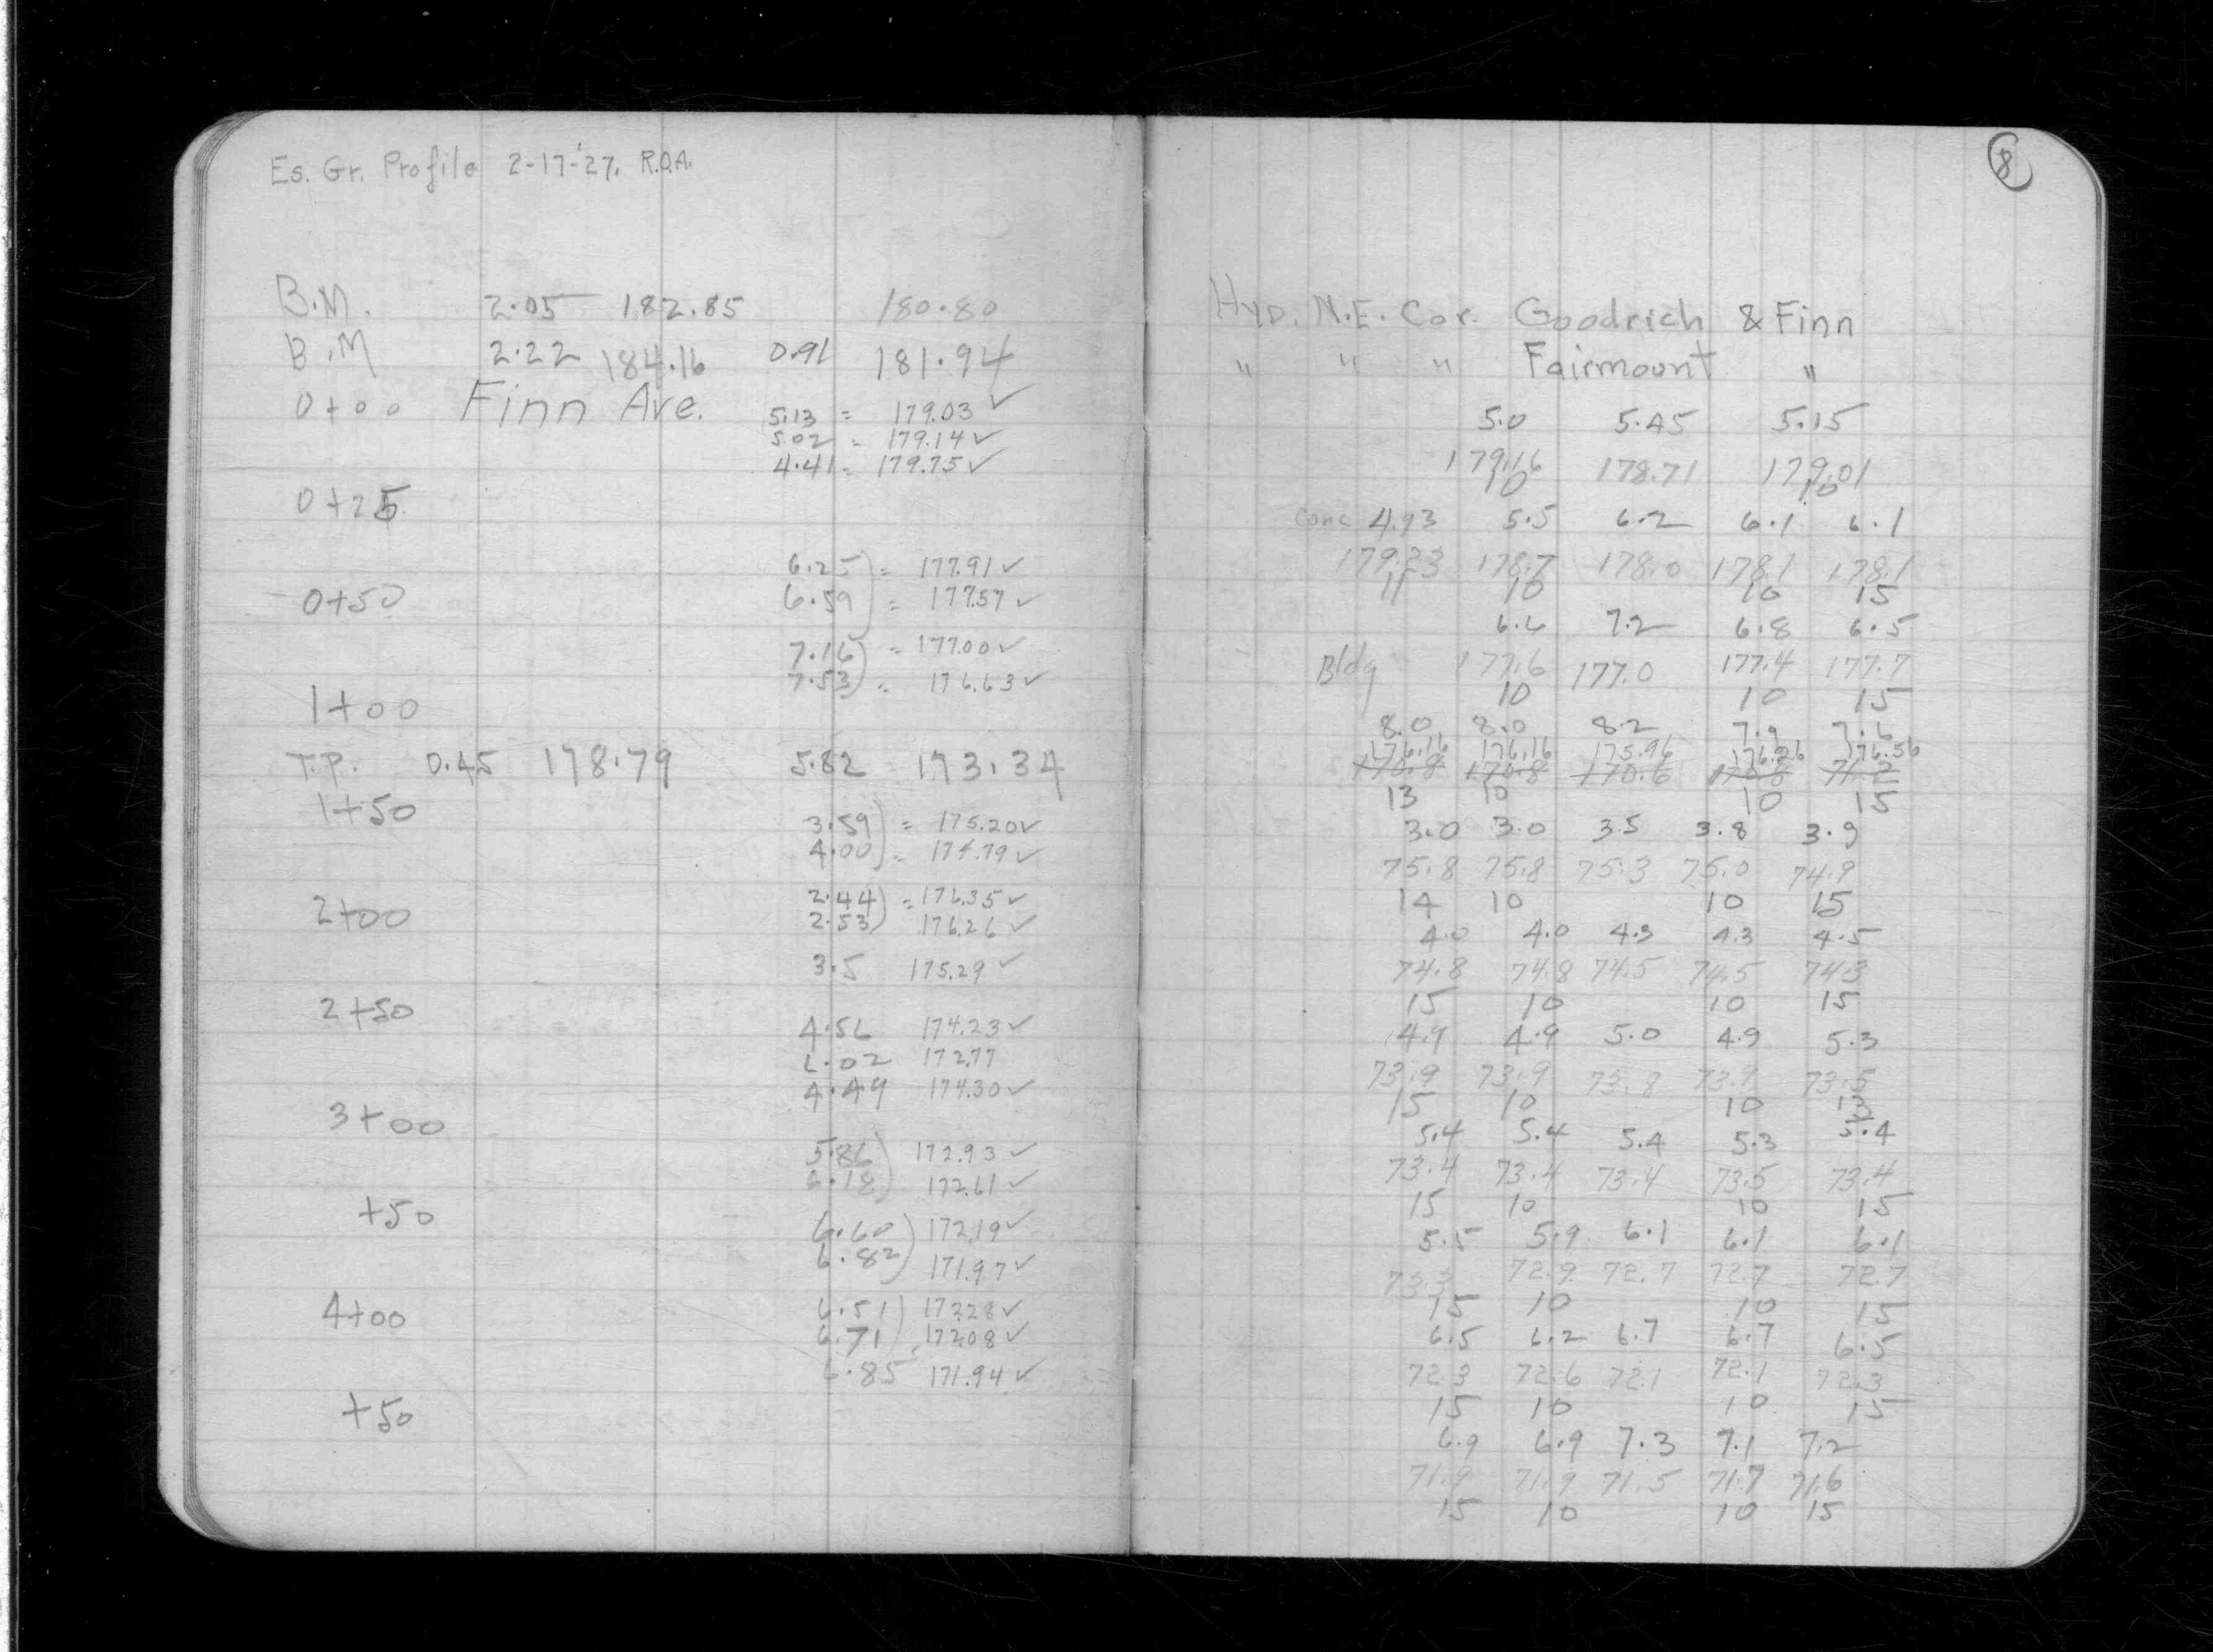 Es. Gr. Profile 2-17-'27. R.O.A.
B.M. 2.05 182.85 180.80
B.M 2.22 184.16 0.91 181.94
0+00 Finn Ave. 5.13 = 179.03 ✓
5.02 = 179.14 ✓
4.41 = 179.75 ✓
0+25
6.25) = 177.91 ✓
0+50 6.59) = 177.57 ✓
7.16) = 177.00 ✓
7.53) = 176.63 ✓
1+00
T.P. 0.45 178.79 5.82 173.34
1+50 3.59) = 175.20 ✓
4.00) = 174.79 ✓
2.44) = 176.35 ✓
2+00 2.53) 176.26 ✓
3.5 175.29 ✓
2+50 4.56 174.23 ✓
6.02 172.77
4.49 174.30 ✓
3+00
5.86) 172.93 ✓
6.18) 172.61 ✓
+50 6.60) 172.19 ✓
6.82) 171.97 ✓
4+00 6.51) 172.28 ✓
6.71) 172.08 ✓
6.85 171.94 ✓
+50
8
Hyd. N.E. Cor. Goodrich & Finn
" " " Fairmount "
5.0 5.45 5.15
179.16 178.71 179.01
10 10
Conc 4.93 5.5 6.2 6.1 6.1
179.23 178.7 178.0 178.1 178.1
11 10 10 15
6.6 7.2 6.8 6.5
Bldg 177.6 177.0 177.4 177.7
10 10 15
8.0 8.0 8.2 7.9 7.6
176.16 176.16 175.96 176.26 176.56
170.8 170.8 170.6 170.8 71.2
13 10 10 15
3.0 3.0 3.5 3.8 3.9
75.8 75.8 75.3 75.0 74.9
14 10 10 15
4.0 4.0 4.3 4.3 4.5
74.8 74.8 74.5 74.5 74.3
15 10 10 15
4.9 4.9 5.0 4.9 5.3
73.9 73.9 73.8 73.9 73.5
15 10 10 15
5.4 5.4 5.4 5.3 5.4
73.4 73.4 73.4 73.5 73.4
15 10 10 15
5.5 5.9 6.1 6.1 6.1
73.3 72.9 72.7 72.7 72.7
15 10 10 15
6.5 6.2 6.7 6.7 6.5
72.3 72.6 72.1 72.1 72.3
15 10 10 15
6.9 6.9 7.3 7.1 7.2
71.9 71.9 71.5 71.7 71.6
15 10 10 15